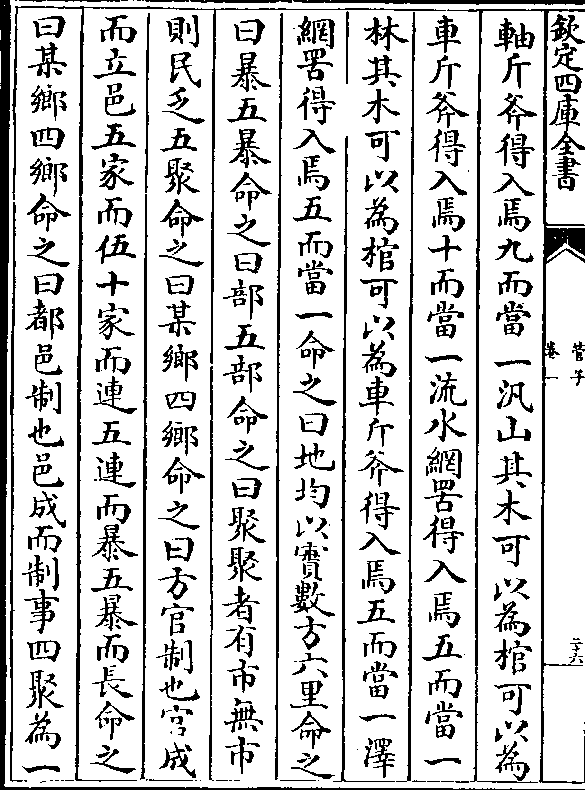 欽定四庫全書
管子
卷一
二十六
軸斤斧得入焉九而當一汎山其木可以為棺可以為
車斤斧得入焉十而當一流水網罟得入焉五而當一
林其木可以為棺可以為車斤斧得入焉五而當一澤
網罟得入焉五而當一命之曰地均以實數方六里命之
曰暴五暴命之曰部五部命之曰聚聚者有市無市
則民乏五聚命之曰某鄉四鄉命之曰方官制也官成
而立邑五家而伍十家而連五連而暴五暴而長命之
曰某鄉四鄉命之曰都邑制也邑成而制事四聚為一